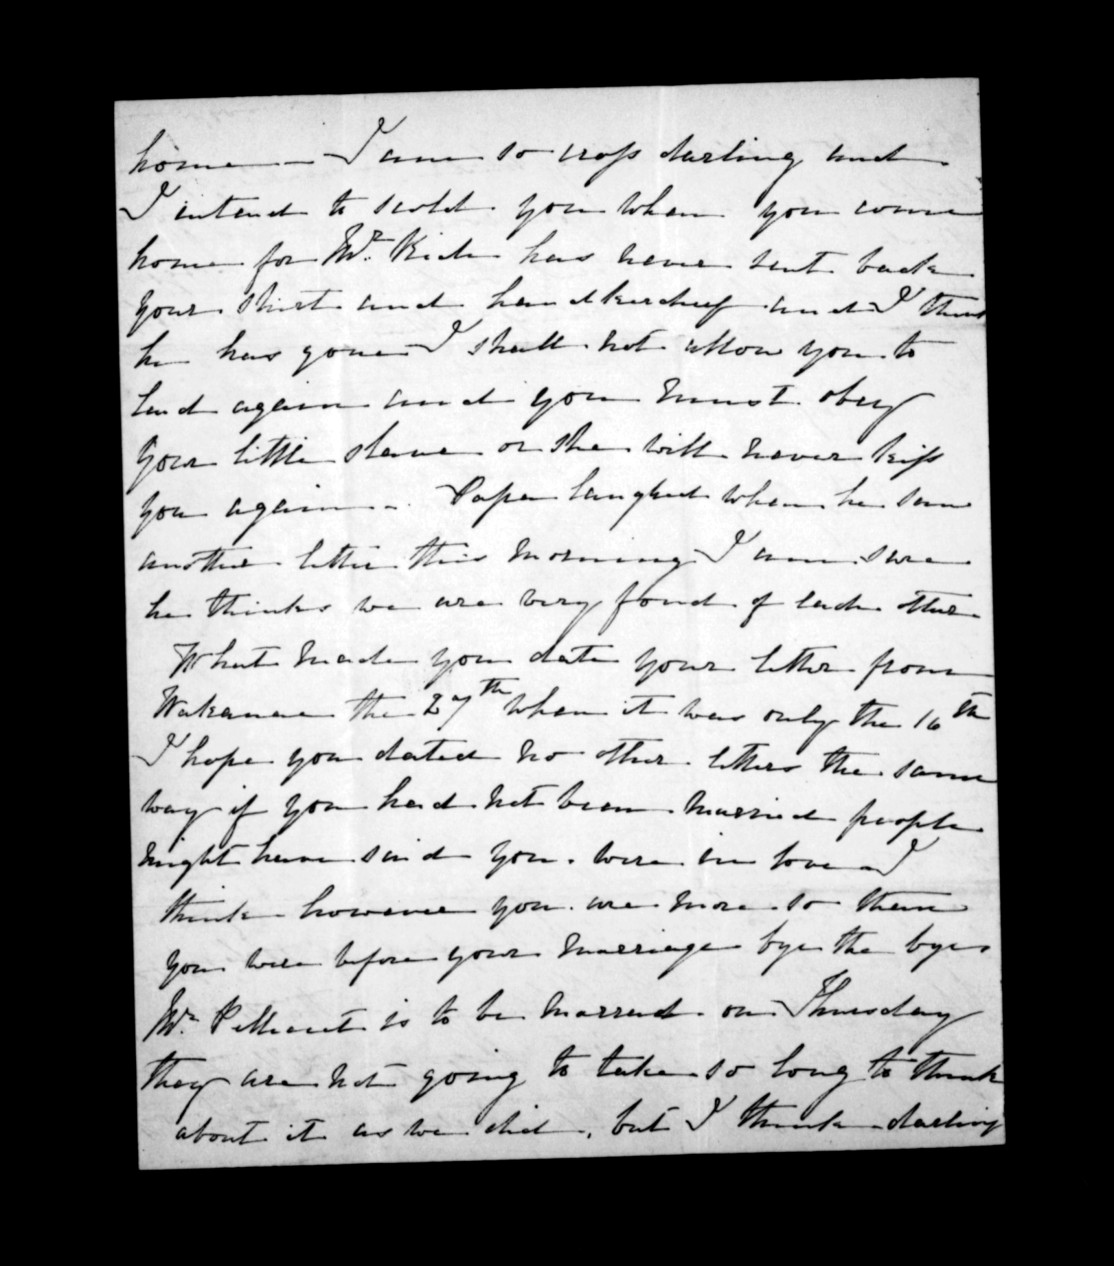 home — I am so cross darling and
I intend to scold you when you come
home for Mr. Rich has never sent back
your shirt and handkerchief and I think
he has gone I shall not allow you to
lend again and you must obey
your little slave or she will never kiss
you again — Papa laughed when he saw
another letter this morning I am sure
he thinks we are very fond of each other
What made you date your letter from
the 27th when it was only the 16th
I hope you dated no other letters the same
way if you had not been married people
might have said you were in love I
think however you are more so than
you were before your marriage bye the bye
Mr. is to be married on Thursday
they are not going to take so long to think
about it as we did, but I think darling